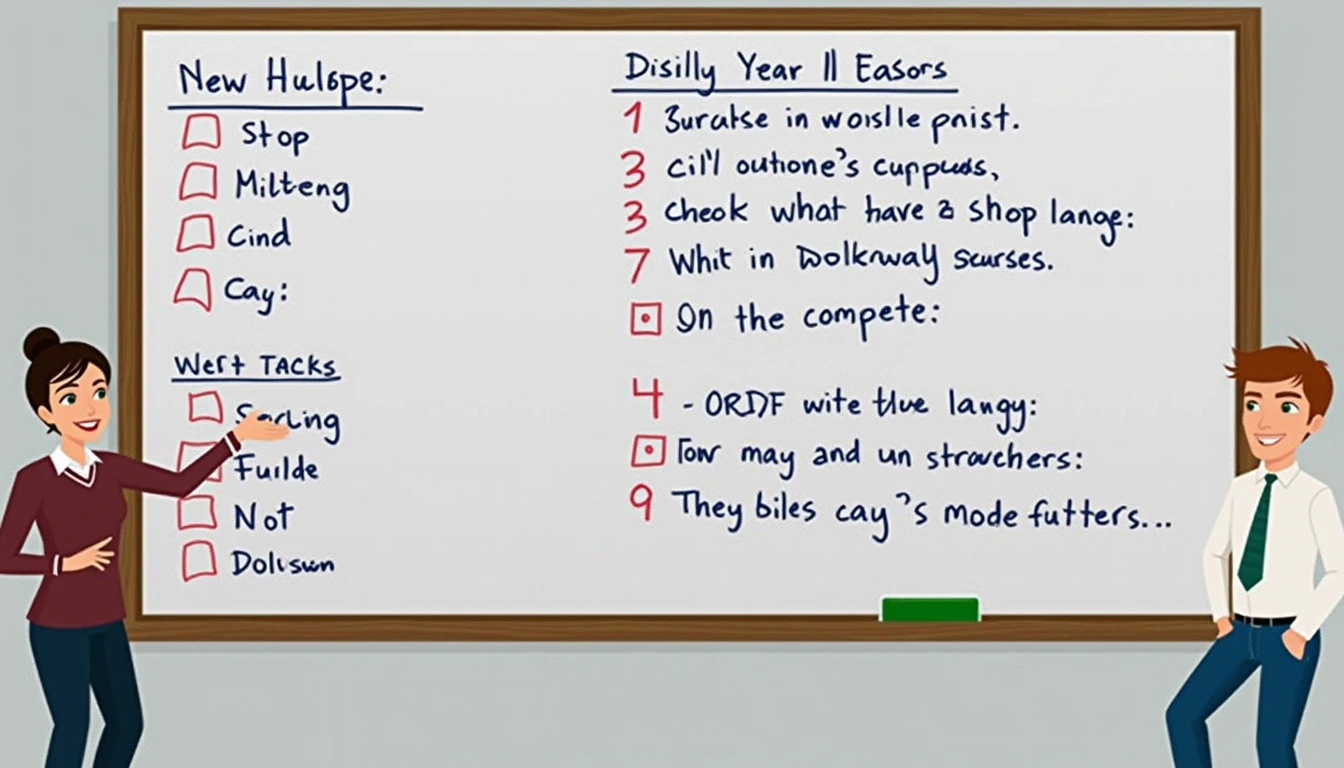 New Hulspe:
Stop
Milteng
Cind
Cay:
Wert TACKS
Fuilde
Not
Doliswn
Disilly Year II Easors
1 Suratse in woislle pnist.
3 cil'l outione's cuppuds,
3 cheok what have a shop lange:
7 Whit in Dolkrway scurses.
On the compete:
4 - ORDF wite tlue langy:
Tow may and un strovchers:
9 They biles cay's mode futters...